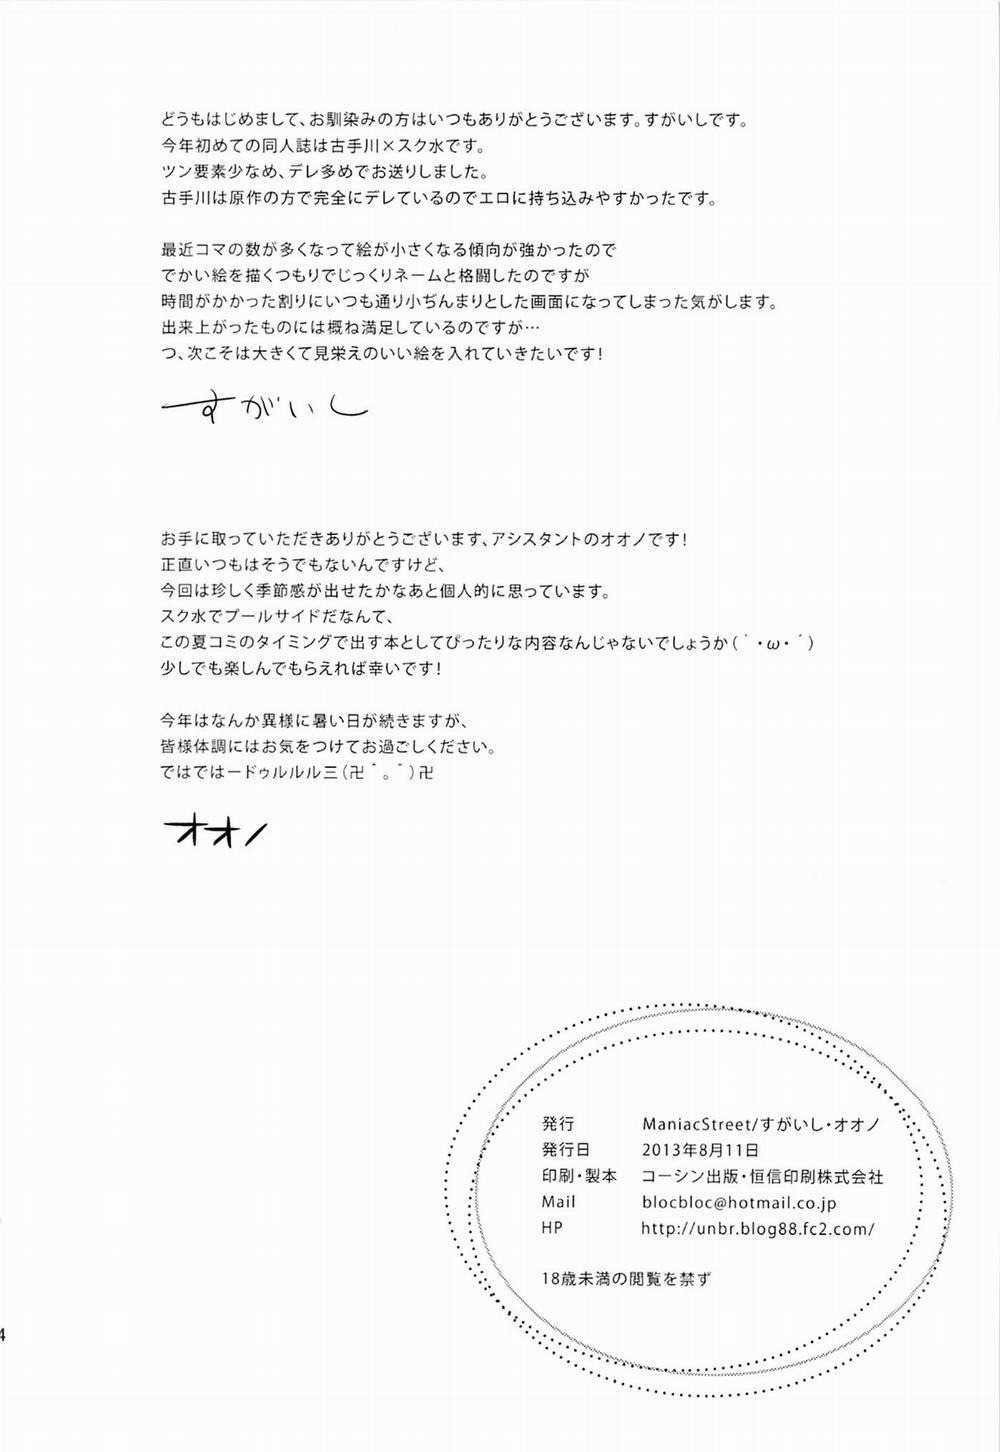 どうもはじめまして、お馴染みの方はいつもありがとうございます。すがいしです。
今年初めての同人誌は古手川×スク水です。
ツン要素少なめ、デレ多めでお送りしました。
古手川は原作の方で完全にデレているのでエロに持ち込みやすかったです。
最近コマの数が多くなって絵が小さくなる傾向が強かったので
でかい絵を描くつもりでじっくりネームと格闘したのですが
時間がかかった割りにいつも通り小ぢんまりとした画面になってしまった気がします。
出来上がったものには概ね満足しているのですが…
つ、次こそは大きくて見栄えのいい絵を入れていきたいです!
すがいし
お手に取っていただきありがとうございます、アシスタントのオオノです!
正直いつもはそうでもないんですけど、
今回は珍しく季節感が出せたかなあと個人的に思っています。
スク水でプールサイドだなんて、
この夏コミのタイミングで出す本としてぴったりな内容なんじゃないでしょうか(｀・ω・´)
少しでも楽しんでもらえれば幸いです!
今年はなんか異様に暑い日が続きますが、
皆様体調にはお気をつけてお過ごしください。
ではではードゥルルル三(卍＾。＾)卍
オオノ
発行 ManiacStreet/すがいし・オオノ
発行日 2013年8月11日
印刷・製本 コーシン出版・恒信印刷株式会社
Mail blocbloc@hotmail.co.jp
HP http://unbr.blog88.fc2.com/
18歳未満の閲覧を禁ず
4